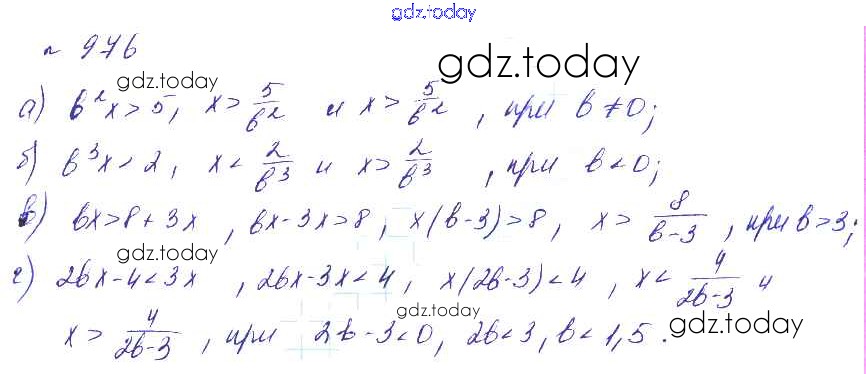 gdz.today
№ 976
gdz.today
gdz.today
а) b²x > 5, x > 5/b² и x > 5/b², при b ≠ 0;
б) b³x < 2, x < 2/b³ и x > 2/b³, при b < 0;
в) bx > 8 + 3x, bx - 3x > 8, x(b-3) > 8, x > 8/(b-3), при b > 3;
gdz.today
г) 2bx - 4 < 3x, 2bx - 3x < 4, x(2b-3) < 4, x < 4/(2b-3) и
x > 4/(2b-3), при 2b - 3 < 0, 2b < 3, b < 1,5.
gdz.today